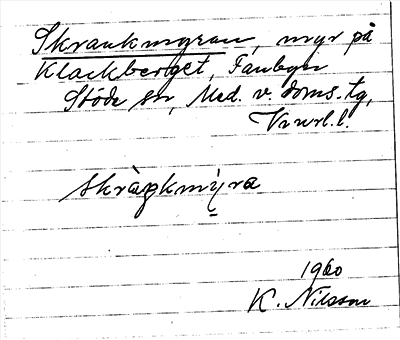 Skrankmyran, myr på
Klackberget, Fanbyn
Stöde sn, Med. v. doms. tg,
Vnrl. l.
skràŋkmỳra
1960
K. Nilsson